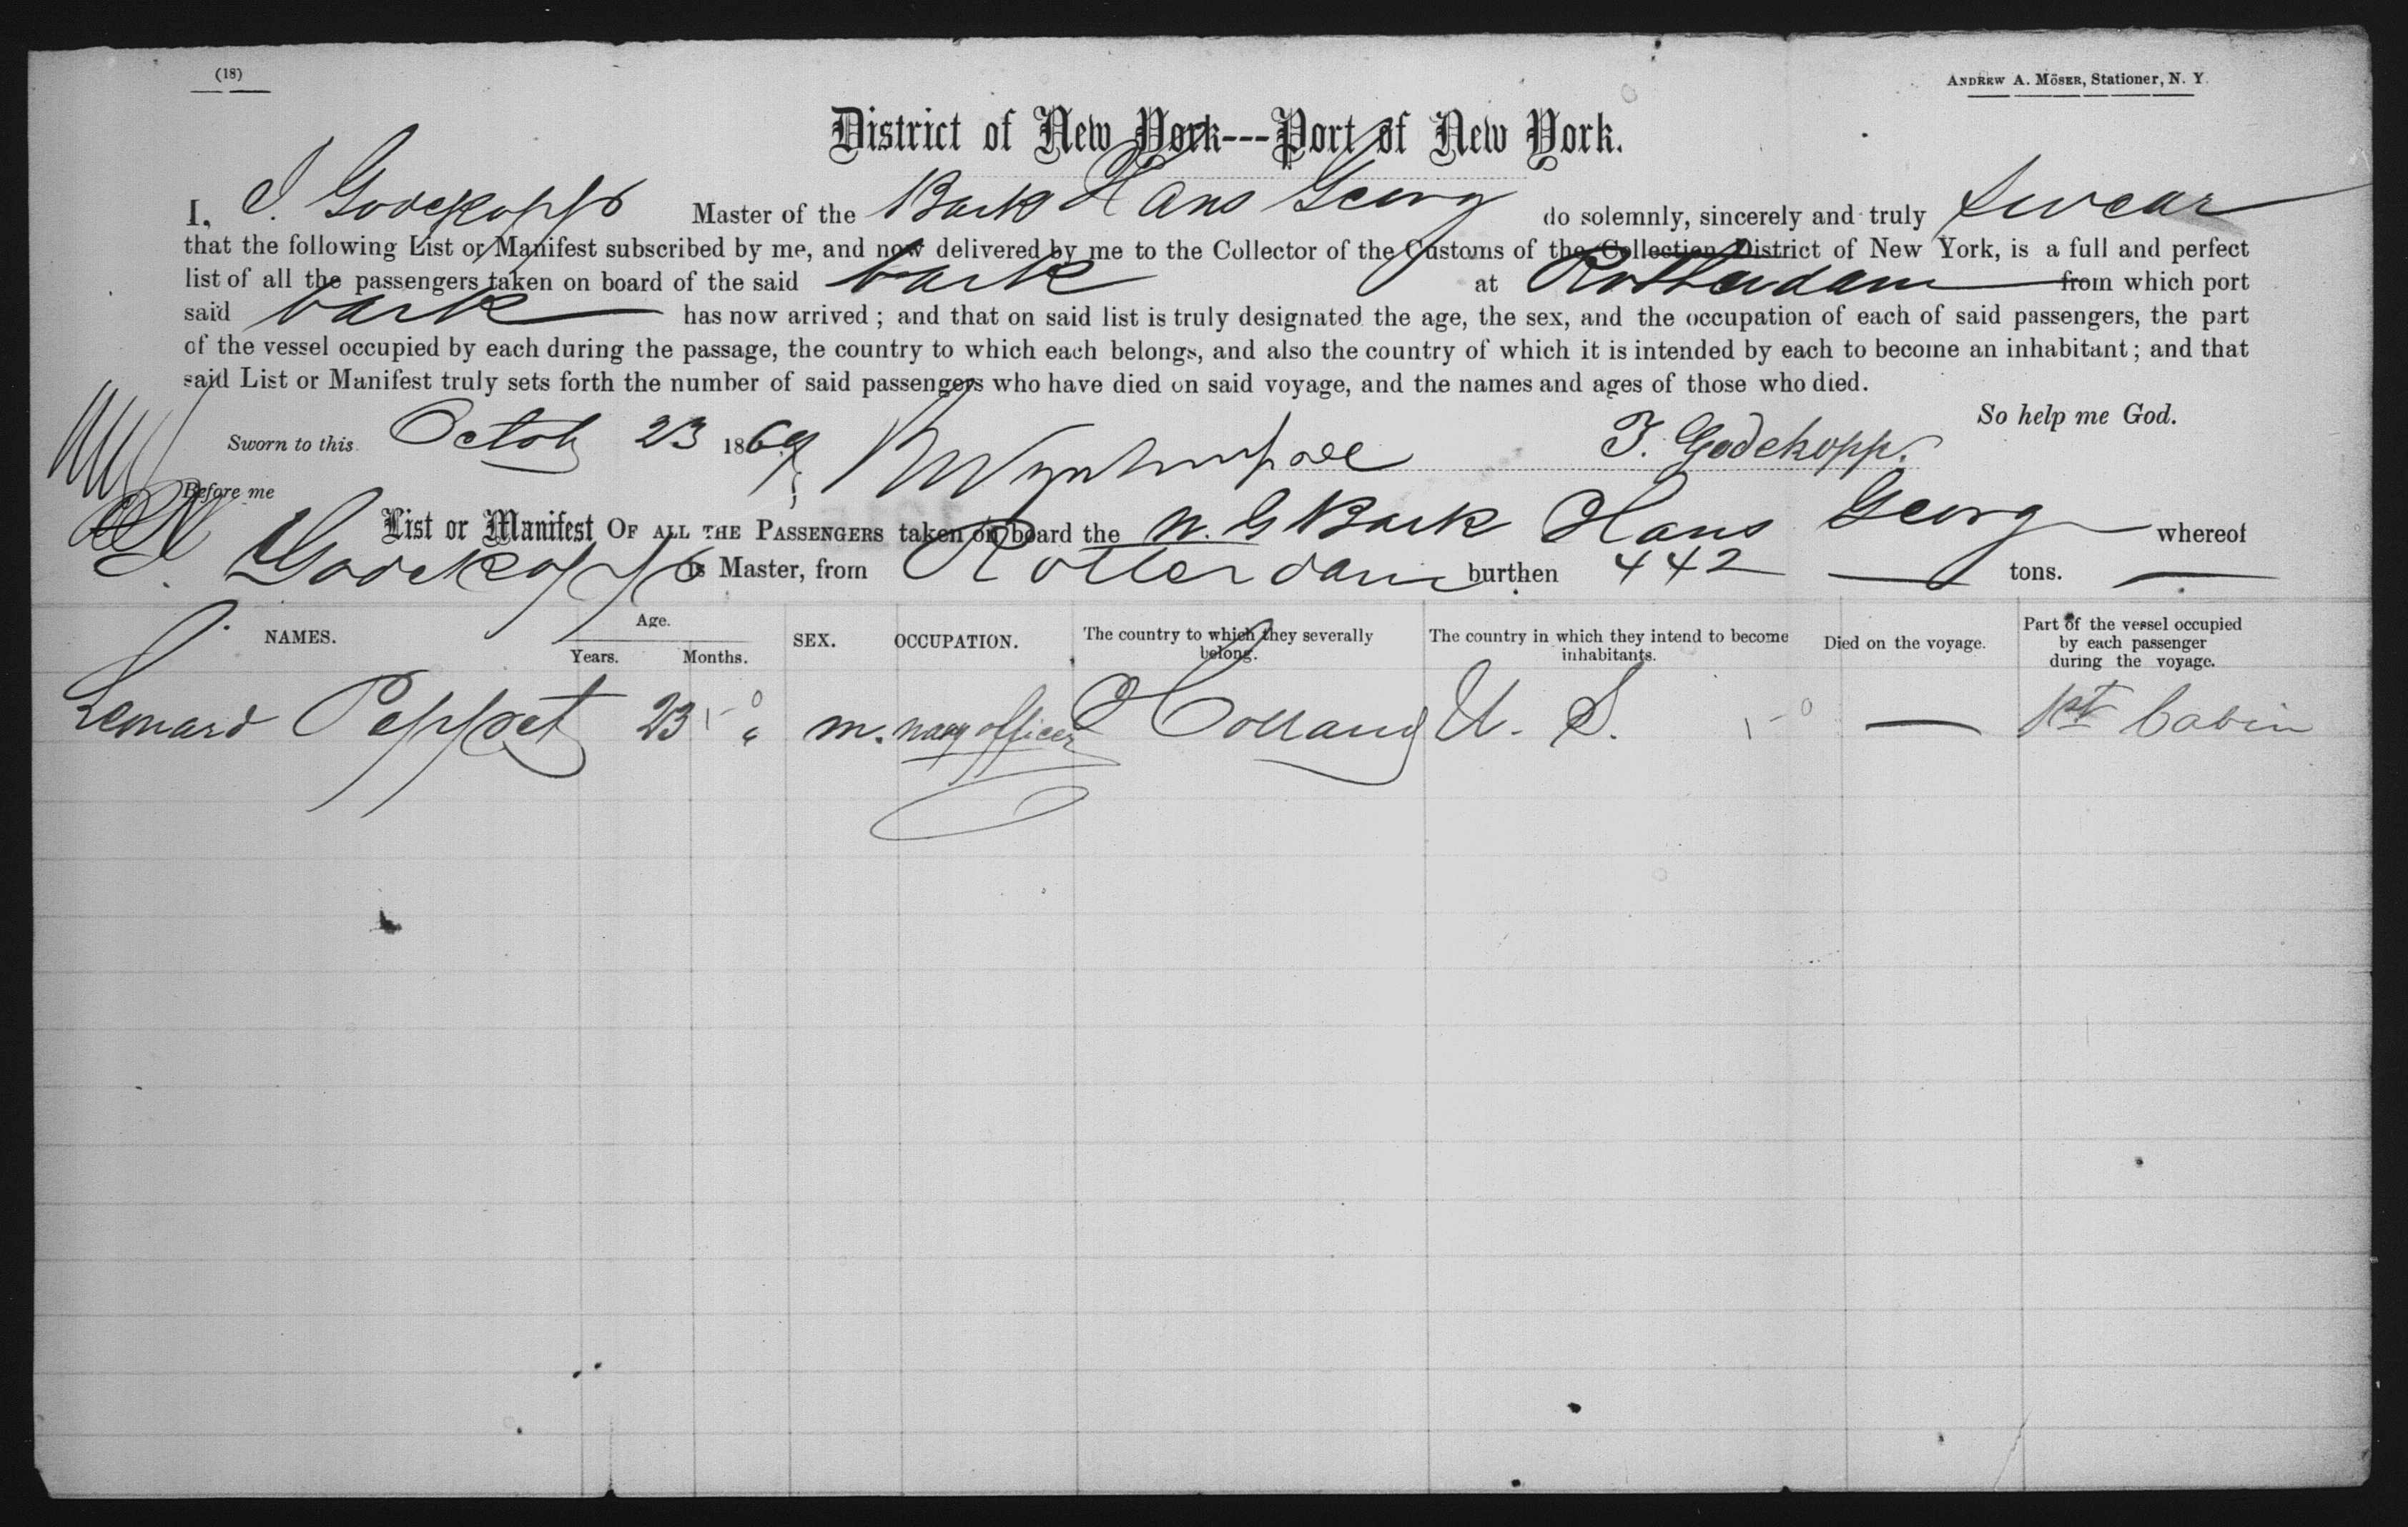 (18)
ANDREW A. MÖSER, Stationer, N. Y.
District of New York---Port of New York.
I, J. Godekopp Master of the Bark Hans Georg do solemnly, sincerely and truly swear
that the following List or Manifest subscribed by me, and now delivered by me to the Collector of the Customs of the Collection District of New York, is a full and perfect
list of all the passengers taken on board of the said bark at Rotterdam from which port
said bark has now arrived ; and that on said list is truly designated the age, the sex, and the occupation of each of said passengers, the part
of the vessel occupied by each during the passage, the country to which each belongs, and also the country of which it is intended by each to become an inhabitant ; and that
said List or Manifest truly sets forth the number of said passengers who have died on said voyage, and the names and ages of those who died.
So help me God.
Sworn to this Octob 23 1869 J. Godekopp.
Before me
List or Manifest OF ALL THE PASSENGERS taken on board the N. G Bark Hans Georg whereof
J. Godekopp is Master, from Rotterdam burthen 442 tons.
NAMES. Age. Years. Months. SEX. OCCUPATION. The country to which they severally belong. The country in which they intend to become inhabitants. Died on the voyage. Part of the vessel occupied by each passenger during the voyage.
Leonard Peppet 23 m. navy officer Holland U. S. — 1st Cabin